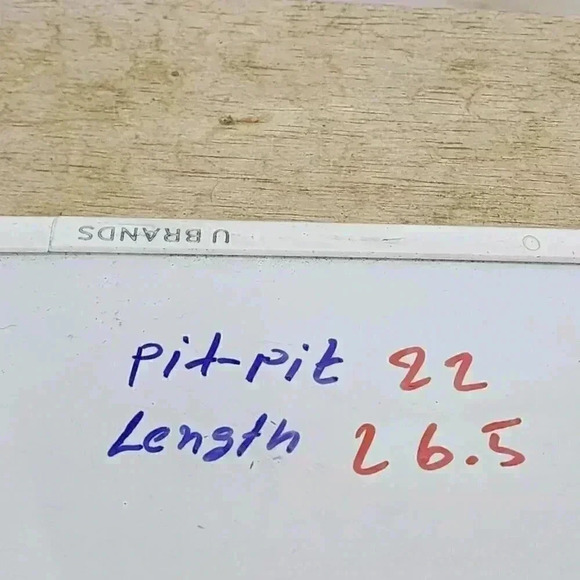 U BRANDS
Pit-Pit 22
Length 26.5